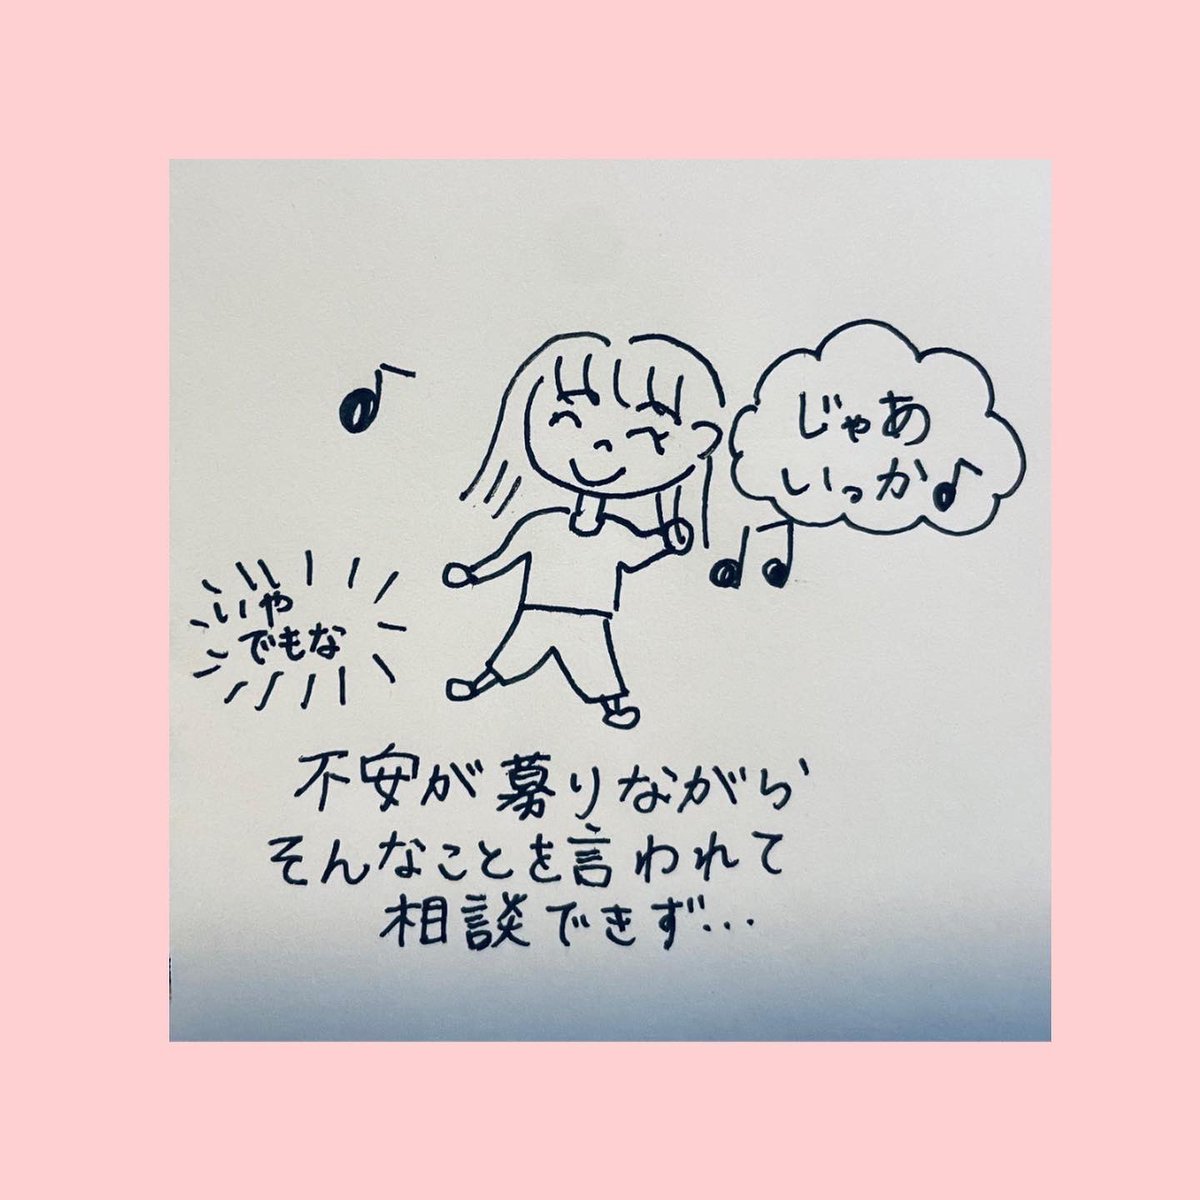 じゃあ
いっか♪
いや
でもな
不安が募りながら
そんなことを言われて
相談できず…